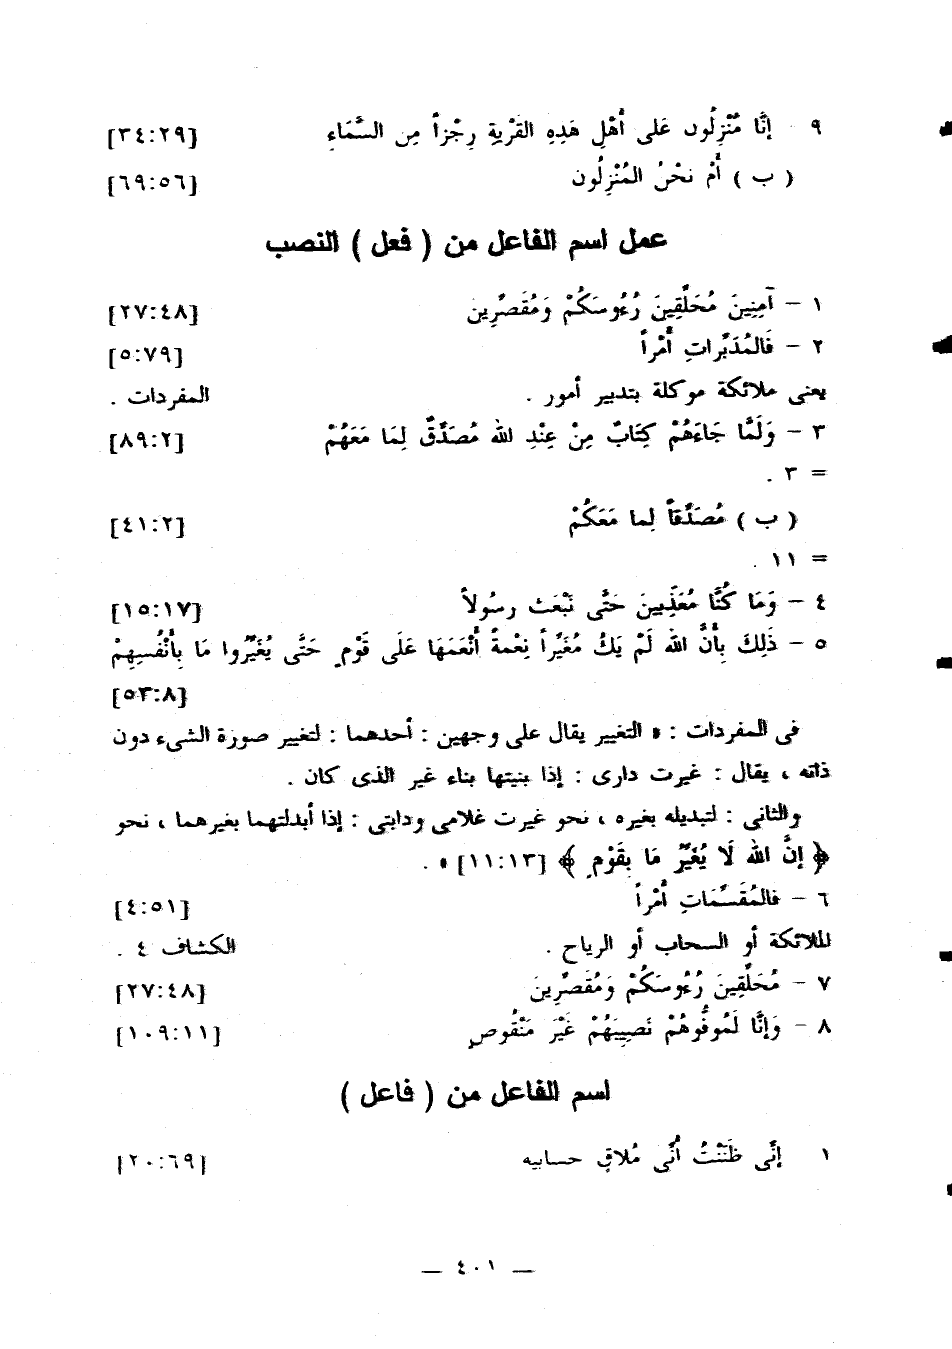 ٩ - إنَّا مُنْزِلُون عَلى أهْلِ هَذِهِ القَرْيةِ رِجْزاً مِن السَّمَاءِ [٣٤:٢٩]
( ب ) أمْ نحْنُ المُنْزِلُون [٦٩:٥٦]
عمل اسم الفاعل من ( فعل ) النصب
١ – آمِنِينَ مُحَلِّقِينَ رُءُوسَكُمْ وَمُقَصِّرِين [٢٧:٤٨]
٢ – فَالمُدَبِّراتِ أمْراً [٥:٧٩]
يعنى ملائكة موكلة بتدبير أمور . المفردات .
٣ – وَلَمَّا جَاءَهُمْ كِتَابٌ مِنْ عِنْدِ الله مُصَدِّقٌ لِمَا مَعَهُمْ [٨٩:٢]
= ٣ .
( ب ) مُصَدِّقاً لِما مَعَكُمْ [٤١:٢]
= ١١ .
٤ – وَمَا كُنَّا مُعَذِّبِينَ حَتَّى نَبْعَث رسُولاً [١٥:١٧]
٥ – ذَلِكَ بِأنَّ الله لَمْ يَكُ مُغَيِّراً نِعْمةً أنْعَمَهَا عَلَى قَوْمٍ حَتَّى يُغَيِّرُوا مَا بِأنْفُسِهِمْ
[٥٣:٨]
فى المفردات : « التغيير يقال على وجهين : أحدهما : لتغيير صورة الشىء دون
ذاته ، يقال : غيرت دارى : إذا بنيتها بناء غير الذى كان .
والثانى : لتبديله بغيره ، نحو غيرت غلامى ودابتى : إذا أبدلتهما بغيرهما ، نحو
﴿ إنَّ الله لَا يُغَيِّرُ مَا بِقَوْمٍ ﴾ [١١:١٣] » .
٦ – فالمُقَسِّمَاتِ أمْراً [٤:٥١]
الملائكة أو السحاب أو الرياح . الكشاف ٤ .
٧ – مُحَلِّقِينَ رُءُوسَكُمْ وَمُقَصِّرِينَ [٢٧:٤٨]
٨ – وَإنَّا لَمُوفُّوهُمْ نَصِيبَهُمْ غَيْرَ مَنْقُوصٍ [١٠٩:١١]
اسم الفاعل من ( فاعل )
١ إنِّى ظَنَنْتُ أنِّى مُلاقٍ حسابيه [٢٠:٦٩]
— ٤٠١ —